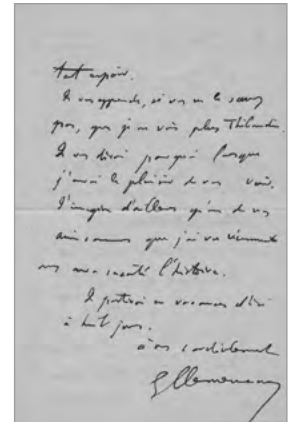 tout espoir.
Je vous apprends, si vous ne le savez
pas, que je ne vois plus Thibaudin.
Je vous dirai pourquoi lorsque
j'aurai le plaisir de vous voir.
J'imagine d'ailleurs qu'un de vos
amis communs que j'ai vu récemment
vous aura raconté l'histoire.
Je partirai en vacances d'ici
à huit jours.
à vous cordialement
GClemenceau